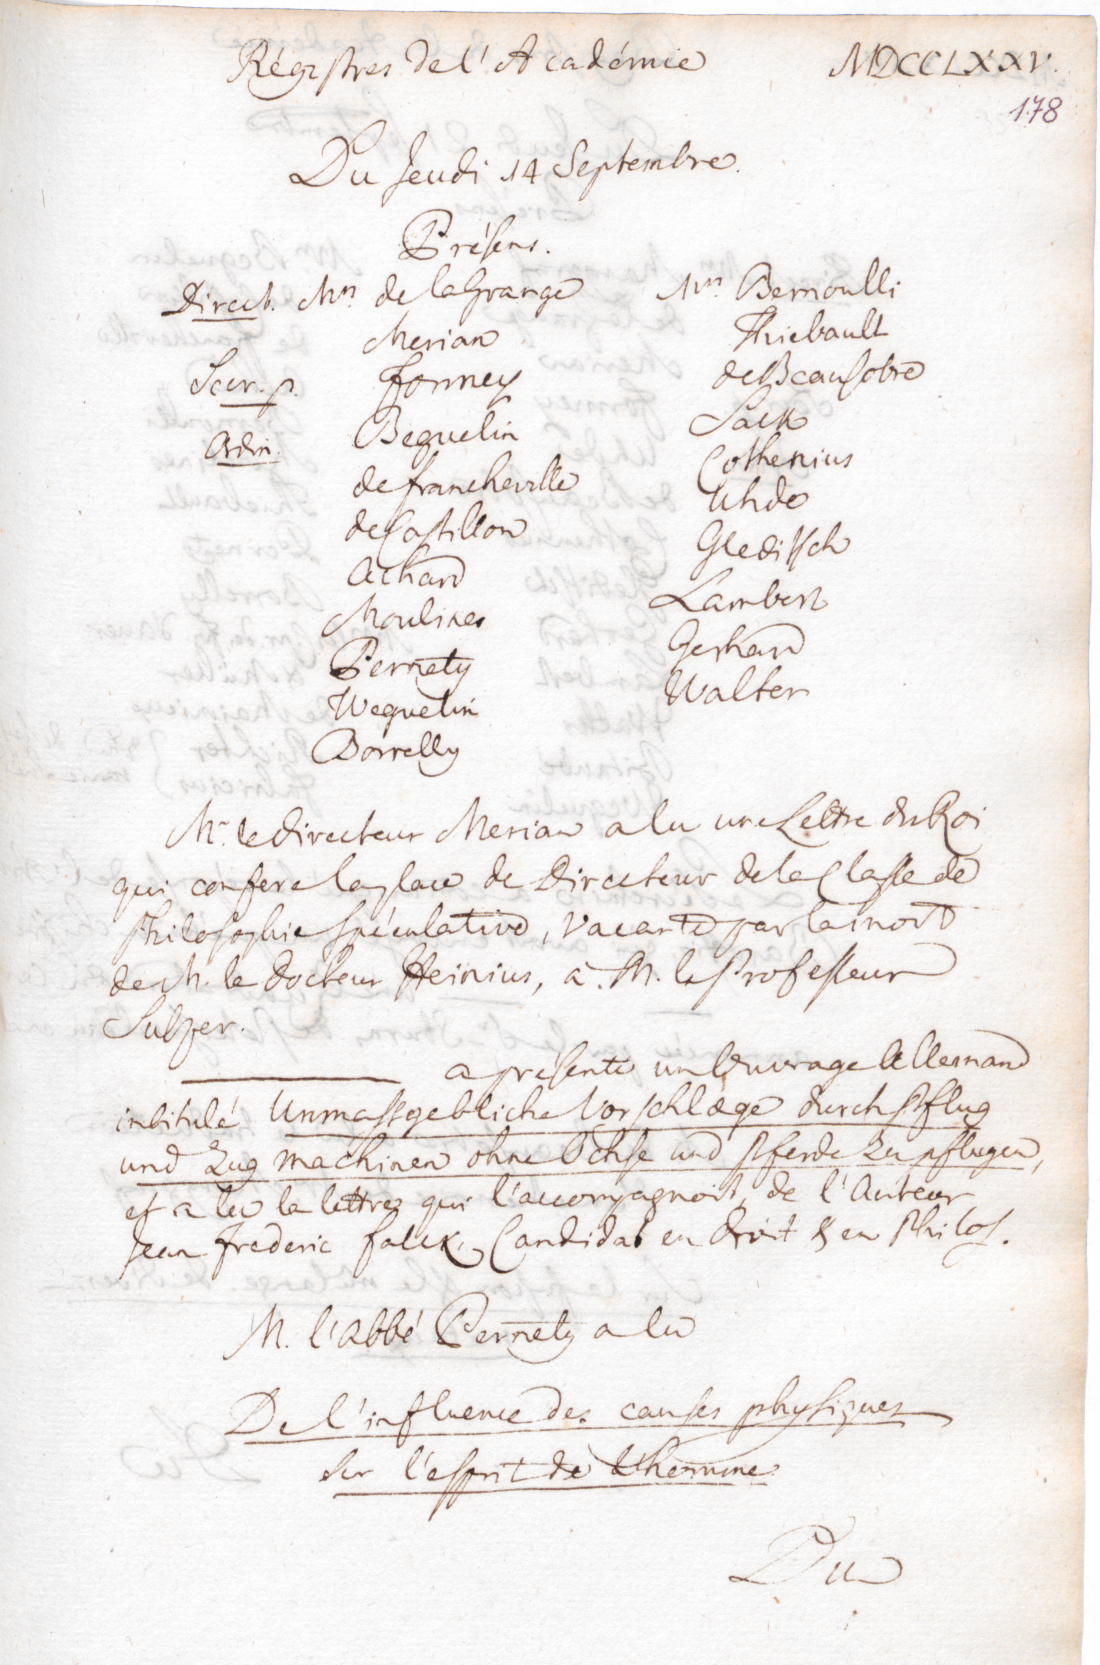 Régistres de l'Académie MDCCLXXV.
178
Du Jeudi 14 Septembre.
Présens.
Direct. Mrs de la Grange
Merian
Secr. p. Formey
Adm. Beguelin
de Francheville
de Castillon
Achard
Moulines
Pernety
Weguelin
Borrelly
Mrs. Bernoulli
Thiebault
de Beausobre
Sack
Cothenius
Uhde
Gleditsch
Lambert
Gerhard
Walter
Mr. le Directeur Merian a lu une Lettre du Roi
qui confere la place de Directeur de la Classe de
Philosophie Spéculative, vacante par la mort
de M. le Docteur Heinius, à M. le Professeur
Sulzer.
a présenté un Ouvrage Allemand
intitulé Unmassgebliche Vorschlæge durch Pflug
und Zug machinen ohne Ochse und Pferde zu pflugen,
et a lu la lettre qui l'accompagnoit, de l'Auteur
Jean Frederic Falck, Candidat en droit & en Philos.
M. l'Abbé Pernety a lu
De l'influence des causes physiques
sur l'esprit de l'homme
Du